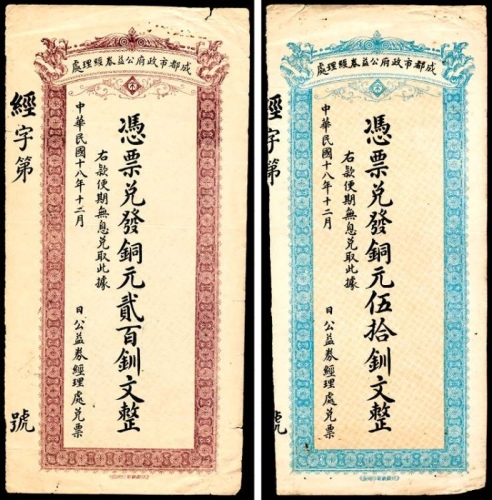 成都市政府公益券經理處
憑票兌發銅元貳百釧文整
右款便期無息兌取此據
中華民國十八年十二月
日公益券經理處兌票
經字第
號
成都市政府公益券經理處
憑票兌發銅元伍拾釧文整
右款便期無息兌取此據
中華民國十八年十二月
日公益券經理處兌票
經字第
號